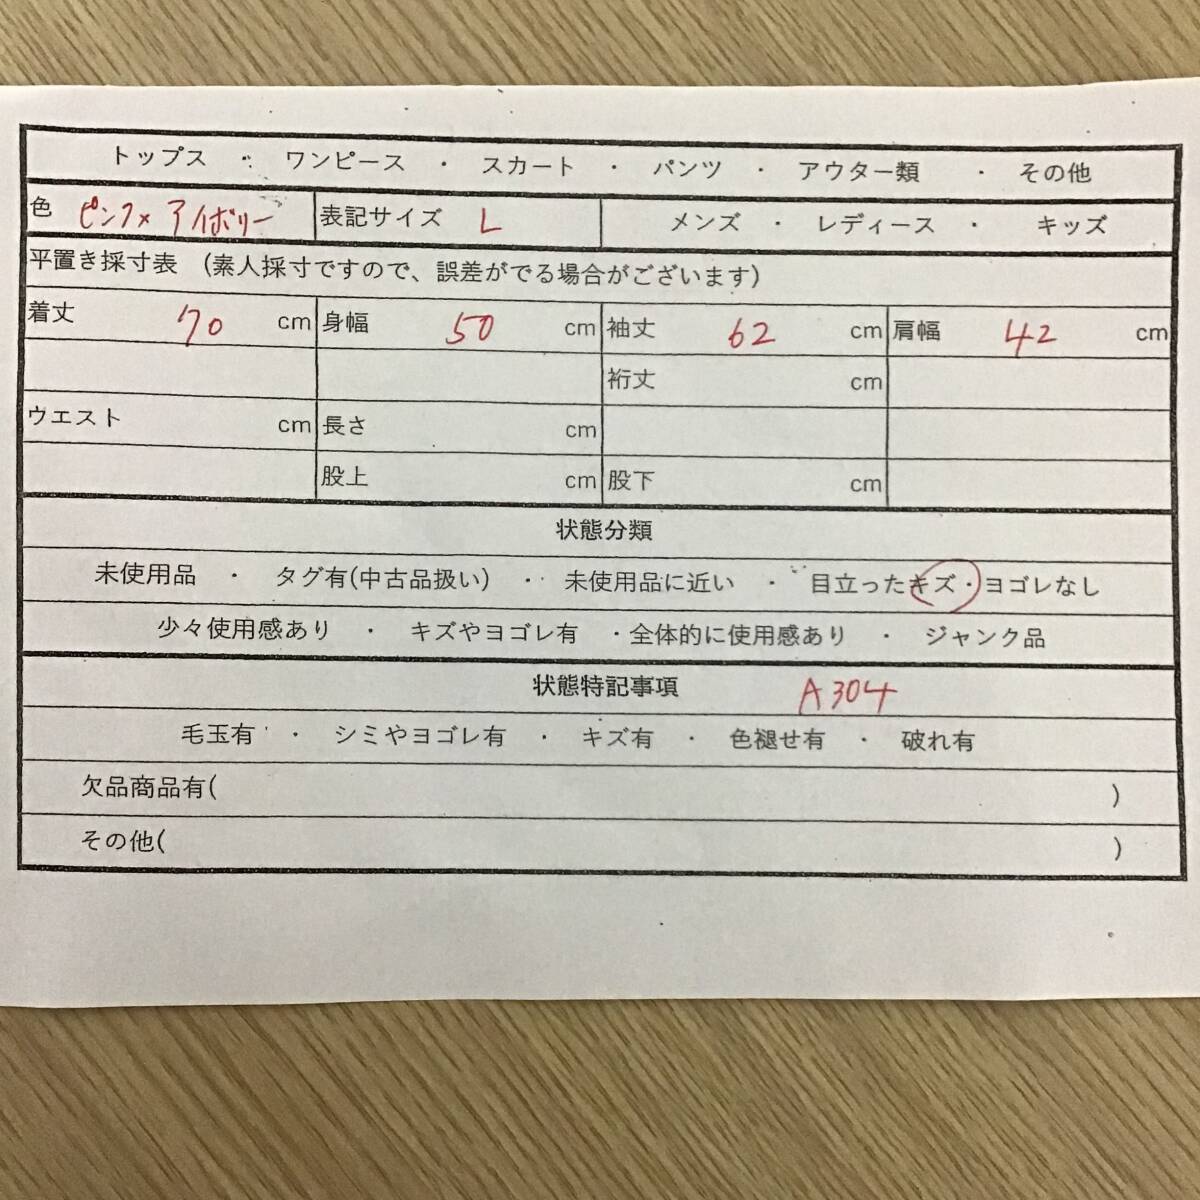 トップス ・ ワンピース ・ スカート ・ パンツ ・ アウター類 ・ その他
色 ピンク×アイボリー 表記サイズ L メンズ ・ レディース ・ キッズ
平置き採寸表 (素人採寸ですので、誤差がでる場合がございます)
着丈 70 cm 身幅 50 cm 袖丈 62 cm 肩幅 42 cm
裄丈 cm
ウエスト cm 長さ cm
股上 cm 股下 cm
状態分類
未使用品 ・ タグ有(中古品扱い) ・ 未使用品に近い ・ 目立ったキズ・ヨゴレなし
少々使用感あり ・ キズやヨゴレ有 ・全体的に使用感あり ・ ジャンク品
状態特記事項 A304
毛玉有 ・ シミやヨゴレ有 ・ キズ有 ・ 色褪せ有 ・ 破れ有
欠品商品有( )
その他( )